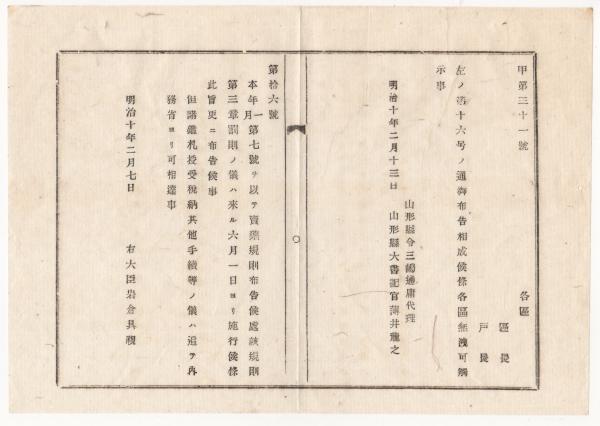 甲第三十一號
各區
區長
戸長
左ノ第十六号ノ通御布告相成候條各區無洩可觸
示事
明治十年二月十三日
山形縣令三島通庸代理
山形縣大書記官薄井龍之
第拾六號
本年一月第七號ヲ以テ賣藥規則布告候處該規則
第三章罰則ノ儀ハ来ル六月一日ヨリ施行候條
此旨更ニ布告候事
但諸鑑札授受税納其他手續等ノ儀ハ追テ内
務省ヨリ可相達事
明治十年二月七日
右大臣岩倉具視